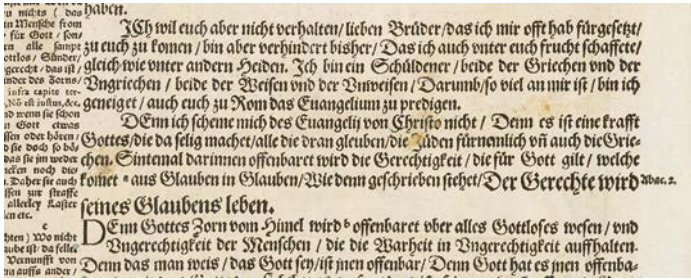 nichts ( das
in Mensche from
für Gott / son/
ern alle sampt
ottlos / Sünder/
gerecht / das ist /
inder des Zorns/
infra capite ter-
Nō est iustus,&c.
d wenn sie schon
n Gott etwas
ssen oder hören /
d sie doch so bö/
das sie jm weder
ncken noch die/
. Daher sie auch
ssen zur straffe
allerley Laster
len etc.
c
hten ) Wo nicht
ube ist / da felle
Vernunfft von
n auffs ander /
haben.
JCh wil euch aber nicht verhalten / lieben Brüder / das ich mir offt hab fürgesetzt /
zu euch zu komen / bin aber verhindert bisher / Das ich auch vnter euch frucht schaffete /
gleich wie vnter andern Heiden. Jch bin ein Schüldener / beide der Griechen vnd der
Vngriechen / beide der Weisen vnd der Vnweisen / Darumb / so viel an mir ist / bin ich
geneiget / auch euch zu Rom das Euangelium zu predigen.
DEnn ich scheme mich des Euangelij von Christo nicht / Denn es ist eine krafft
Gottes / die da selig machet / alle die dran gleuben / die Jüden fürnemlich vñ auch die Grie-
chen. Sintemal darinnen offenbaret wird die Gerechtigkeit / die für Gott gilt / welche
komet a aus Glauben in Glauben / Wie denn geschrieben stehet / Der Gerechte wird
seines Glaubens leben.
DEnn Gottes Zorn vom Himel wird b offenbaret vber alles Gottloses wesen / vnd
Vngerechtigkeit der Menschen / die die Warheit in Vngerechtigkeit auffhalten.
Denn das man weis / das Gott sey / ist jnen offenbar / Denn Gott hat es jnen offenba-
Abac. 2.